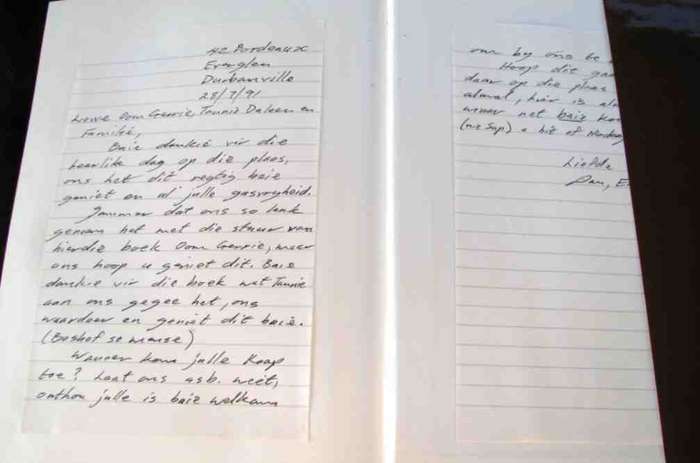 42 Bordeaux
Everglen
Durbanville
28/7/91
Liewe Oom Gerrie, Tannie Daleen en
Familie,
Baie dankie vir die
heerlike dag op die plaas,
ons het dit regtig baie
geniet en al julle gasvryheid.
Jammer dat ons so lank
geneem het met die stuur van
hierdie boek Oom Gerrie, maar
ons hoop u geniet dit. Baie
dankie vir die boek wat Tannie
aan ons gegee het, ons
waardeer en geniet dit baie.
(Boshof se mense)
Wanneer kom julle Kaap
toe? Laat ons asb. weet,
onthou julle is baie welkom
om by ons be
Hoop dit gaan
daar op die plaas
almal, hier is
weer net baie
(nie Sap)
Liefde